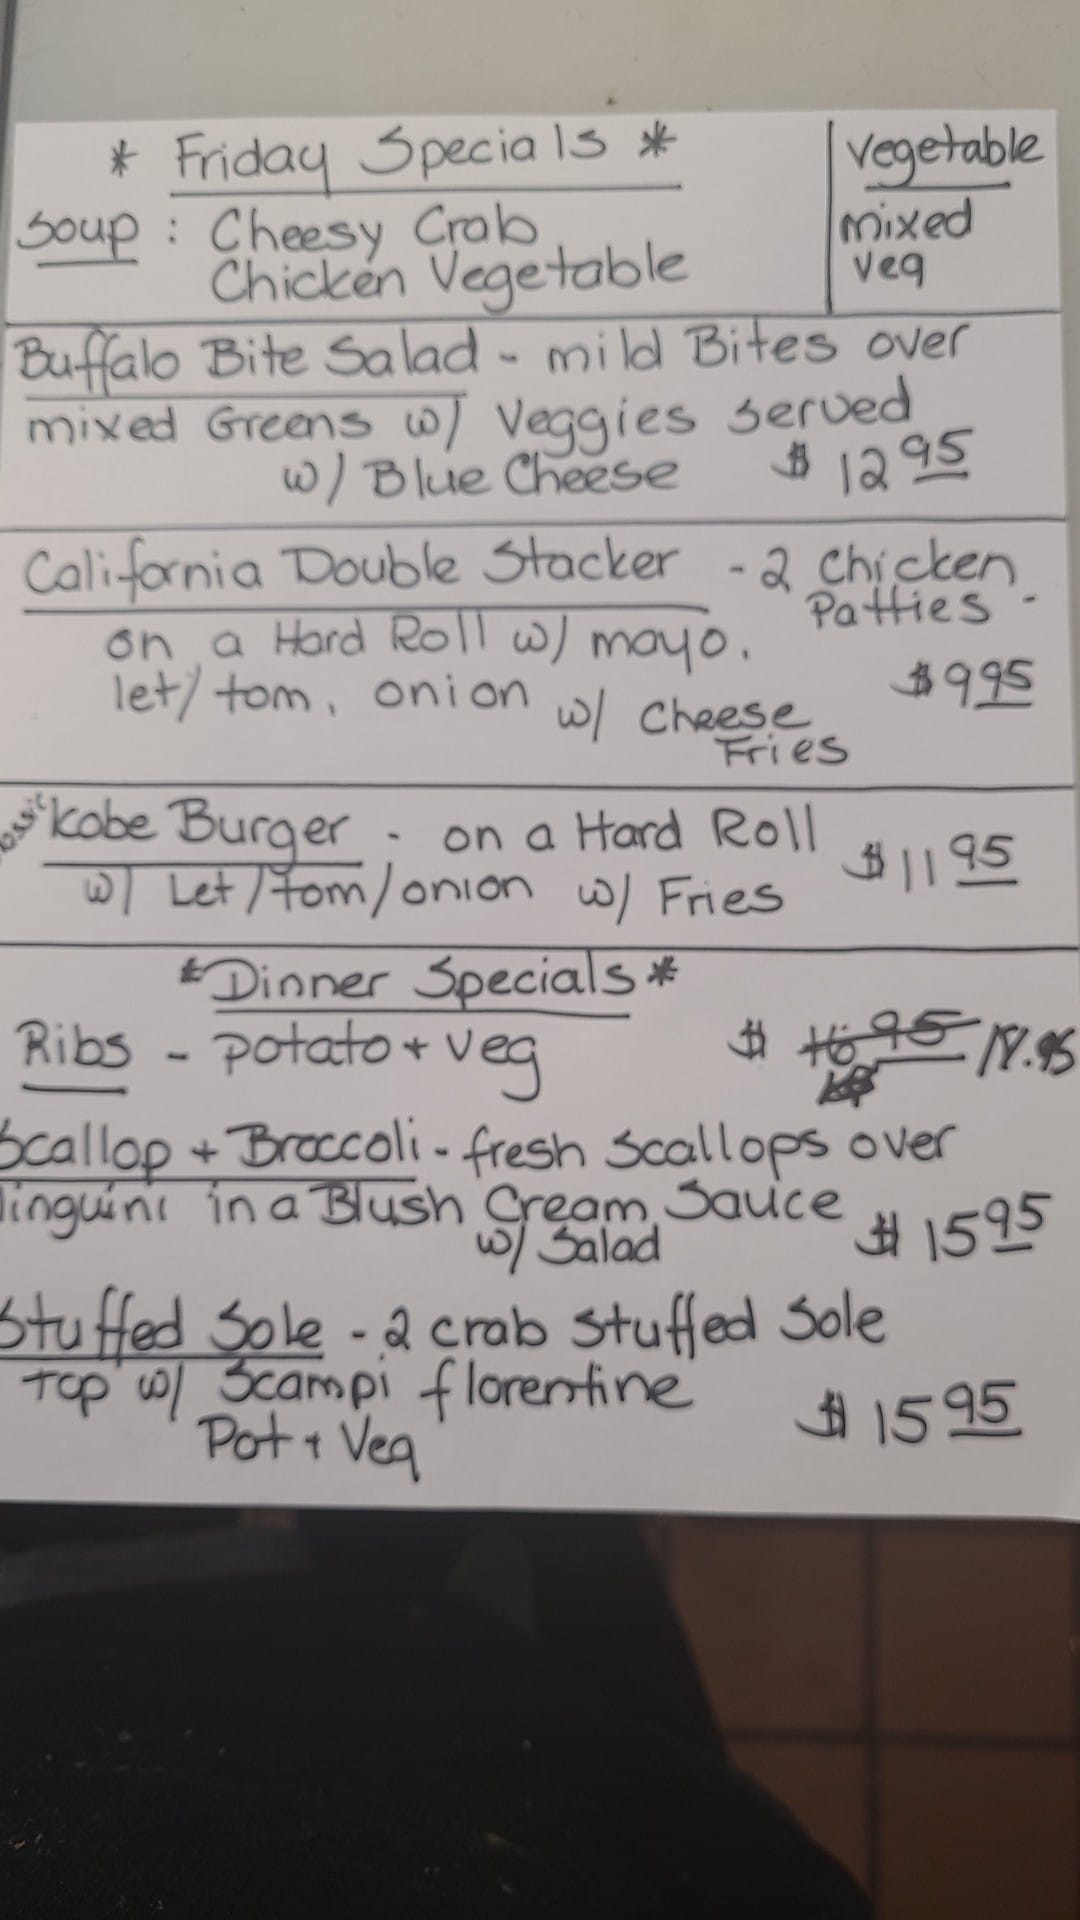 * Friday Specials *
Soup : Cheesy Crab
Chicken Vegetable
Vegetable
mixed
veg
Buffalo Bite Salad - mild Bites over
mixed Greens w/ Veggies served
w/ Blue Cheese $ 12 95
California Double Stacker - 2 Chicken
Patties -
on a Hard Roll w/ mayo,
let/tom, onion w/ Cheese $ 9 95
Fries
Kobe Burger - on a Hard Roll $ 11 95
w/ Let/tom/onion w/ Fries
*Dinner Specials*
Ribs - potato + veg $ 16 95 18.95
Scallop + Broccoli - fresh Scallops over
linguini in a Blush Cream Sauce
w/ Salad $ 15 95
Stuffed Sole - 2 crab stuffed Sole
top w/ Scampi florentine
Pot + Veg $ 15 95